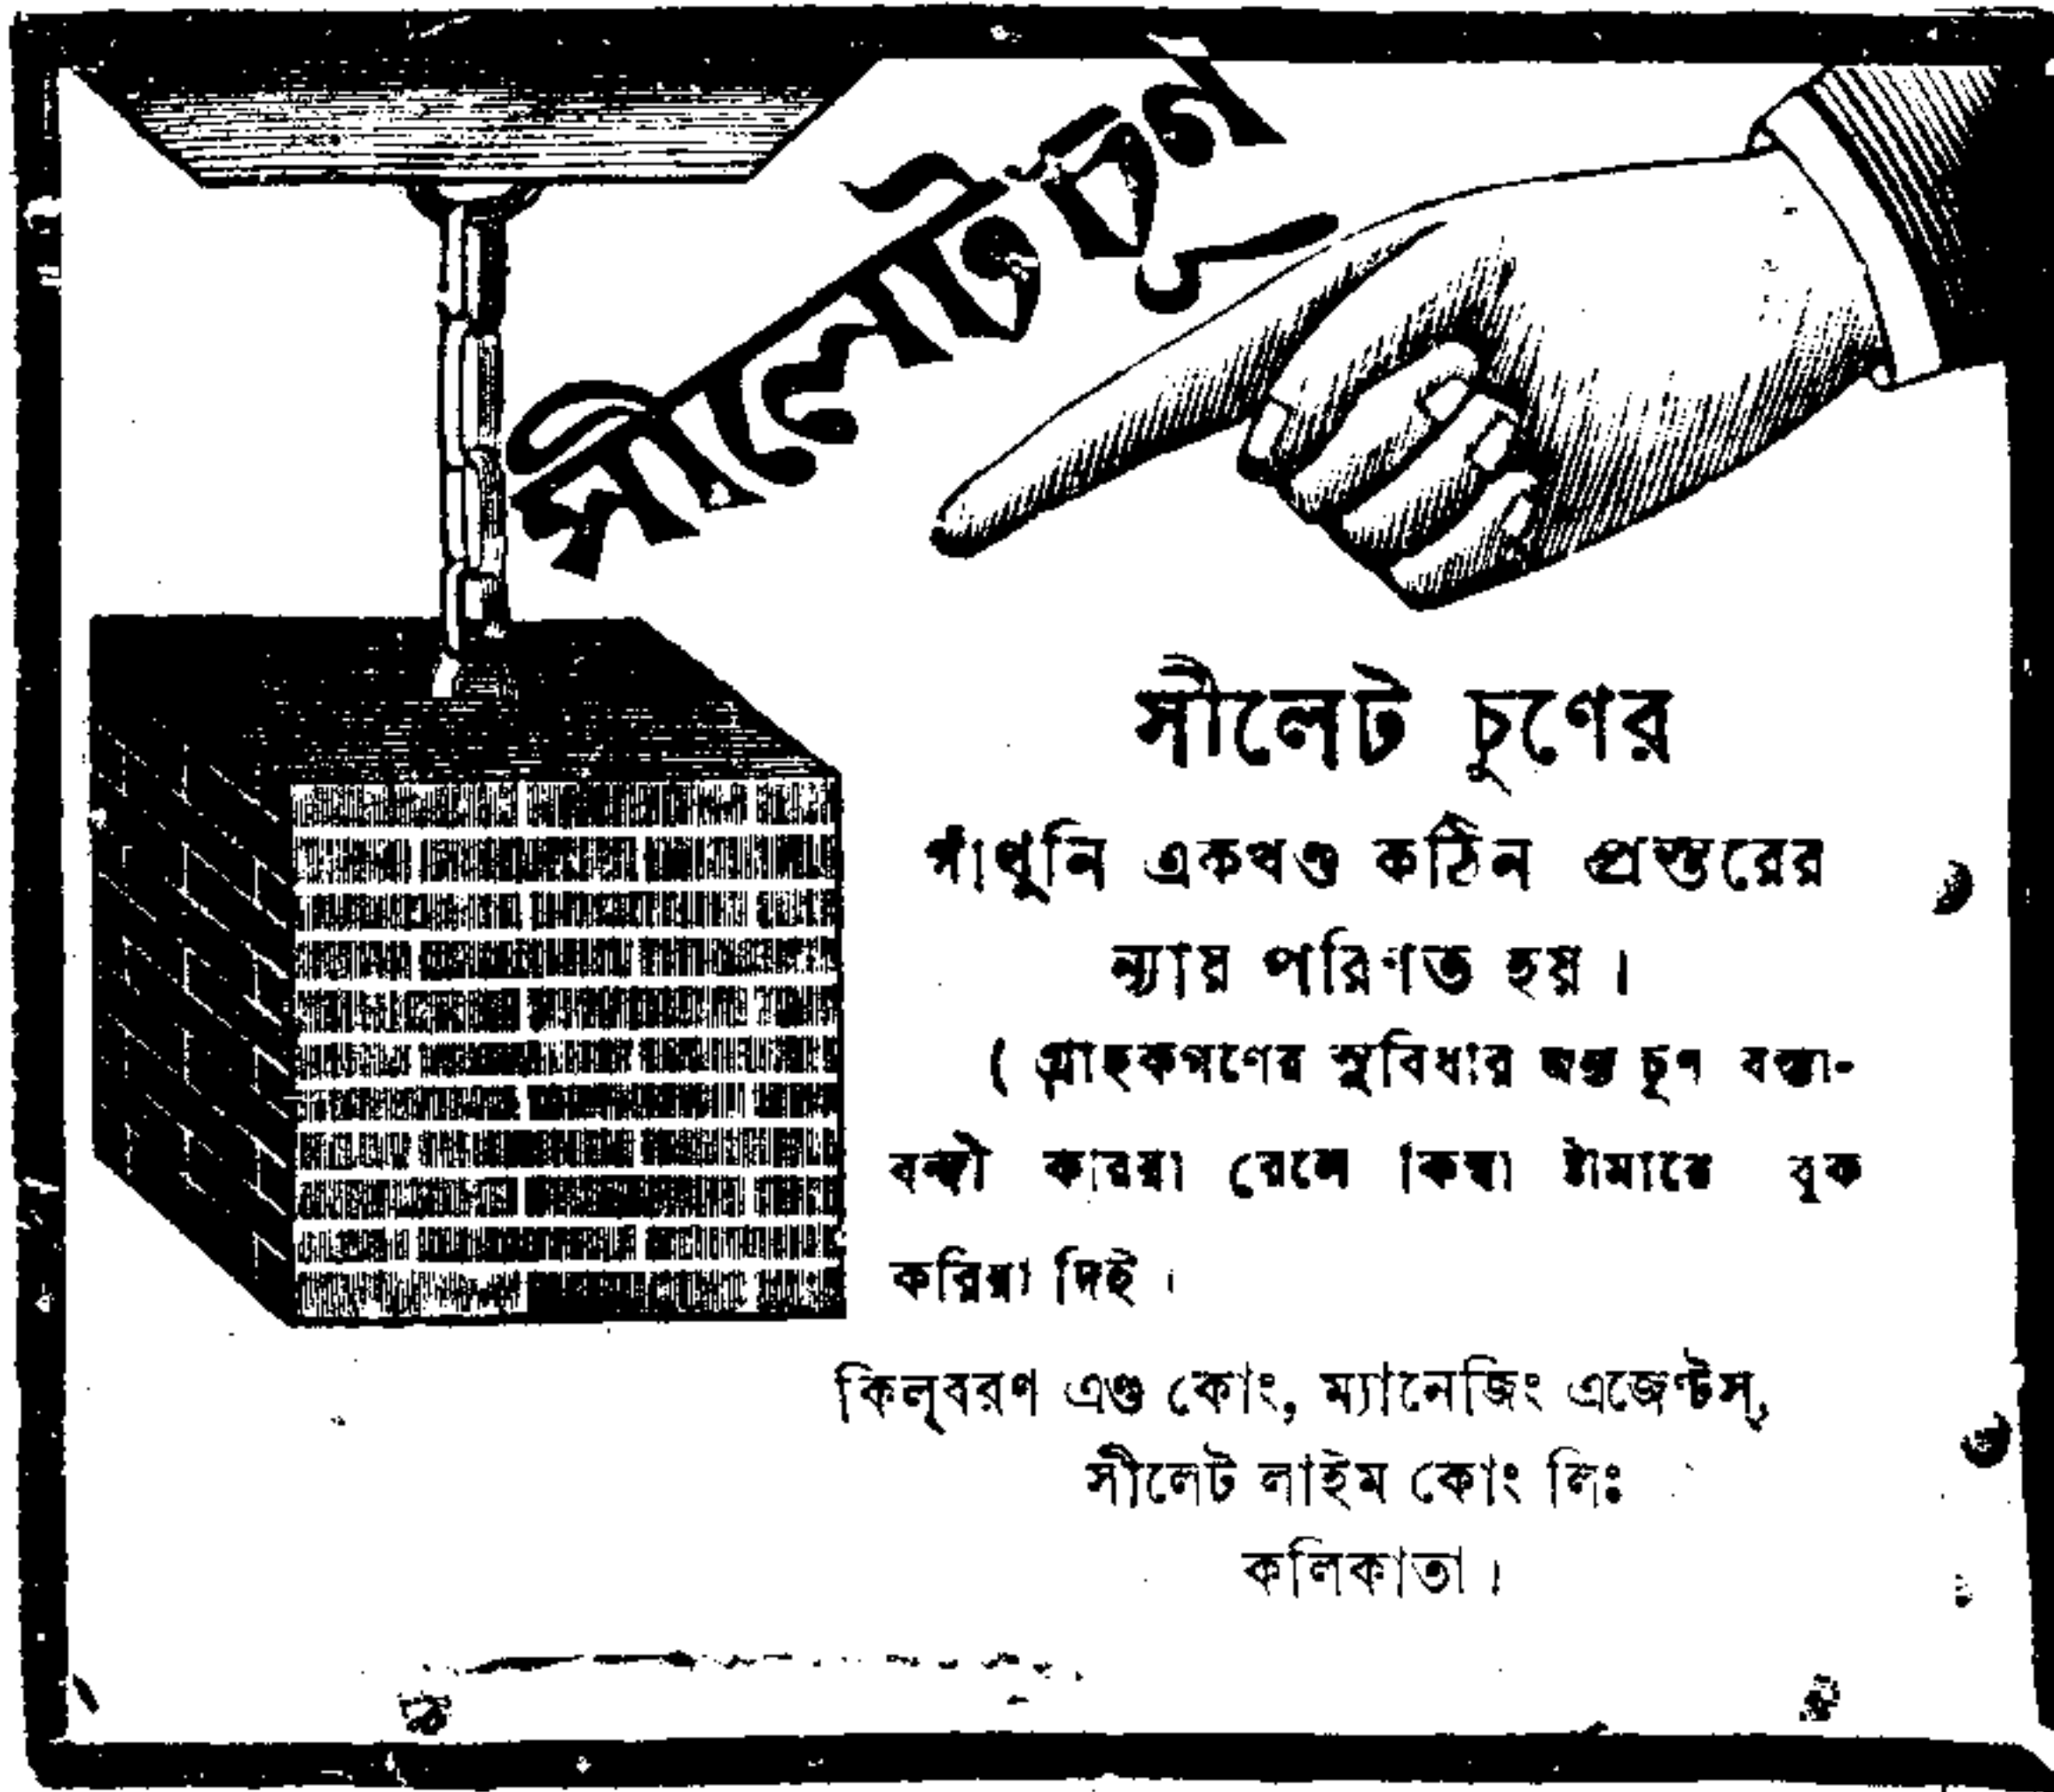 সীলেট চূণ
সীলেট চুণের
গাঁথুনি একখণ্ড কঠিন প্রস্তরের
ন্যায় পরিণত হয়।
( গ্রাহকগণের সুবিধার জন্য চূণ বস্তা-
বন্দী করিয়া রেলে কিম্বা ষ্টীমারে বুক
করিয়া দিই।
কিল্‌বরণ এণ্ড কোং, ম্যানেজিং এজেণ্টস্,
সীলেট লাইম কোং লিঃ
কলিকাতা।